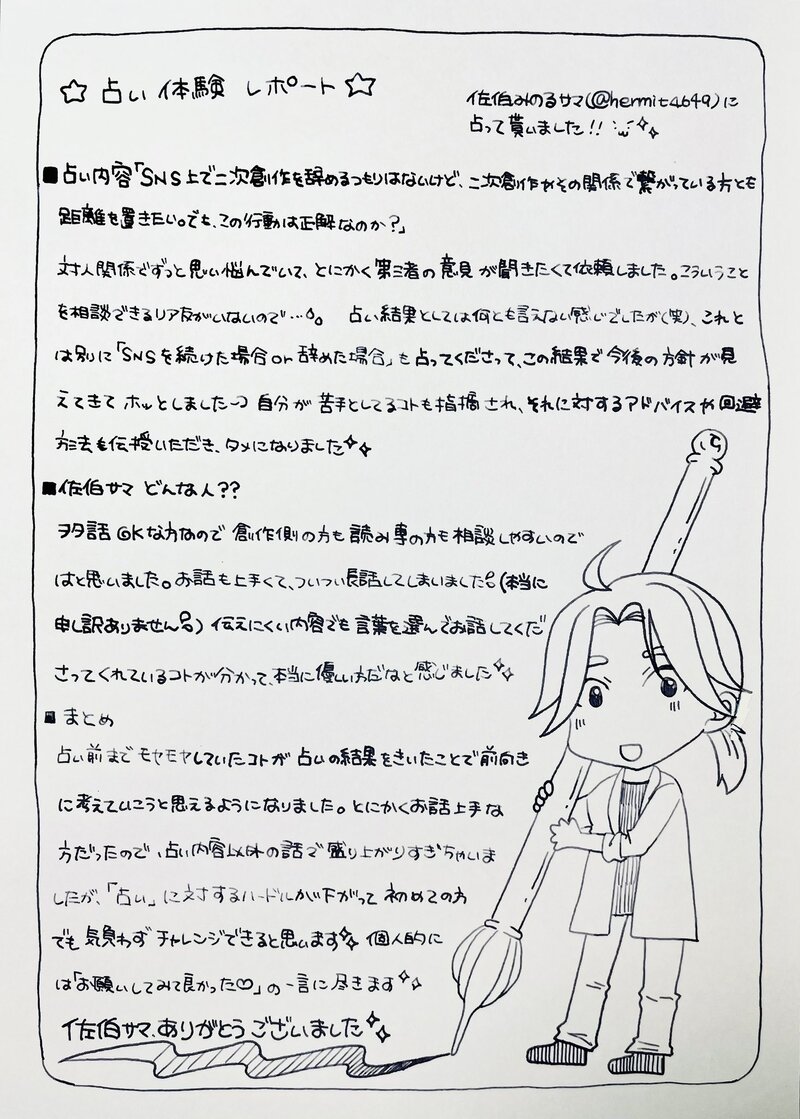 ☆占い 体験 レポート☆
佐伯みのるサマ(@hermit4649)に
占って貰いました!!
■占い内容「SNS上で二次創作を辞めるつもりはないけど、二次創作やその関係で繋がっている方とも
距離を置きたい。でも、この行動は正解なのか?」
対人関係でずっと思い悩んでいて、とにかく第三者の意見が聞きたくて依頼しました。こういうこと
を相談できるリア友がいないので… 占い結果としては何とも言えない感じでしたが(笑)、これと
は別に「SNSを続けた場合or辞めた場合」も占ってくださって、この結果で今後の方針が見
えてきてホッとしました 自分が苦手としてるコトも指摘され、それに対するアドバイスや回避
方法も伝授いただき、タメになりました
■佐伯サマ どんな人??
ヲタ話OKな方なので創作側の方も読み専の方も相談しやすいので
はと思いました。お話も上手くて、ついつい長話してしまいました(本当に
申し訳ありません)伝えにくい内容でも言葉を選んでお話してくだ
さってくれているコトが分かって、本当に優しい方だなと感じました
■まとめ
占い前までモヤモヤしていたコトが占いの結果をきいたことで前向き
に考えていこうと思えるようになりました。とにかくお話上手な
方だったので、占い内容以外の話で盛り上がりすぎちゃいま
したが、「占い」に対するハードルが下がって初めての方
でも気負わずチャレンジできると思います 個人的に
は「お願いしてみて良かった♡」の一言に尽きます
佐伯サマ、ありがとうございました